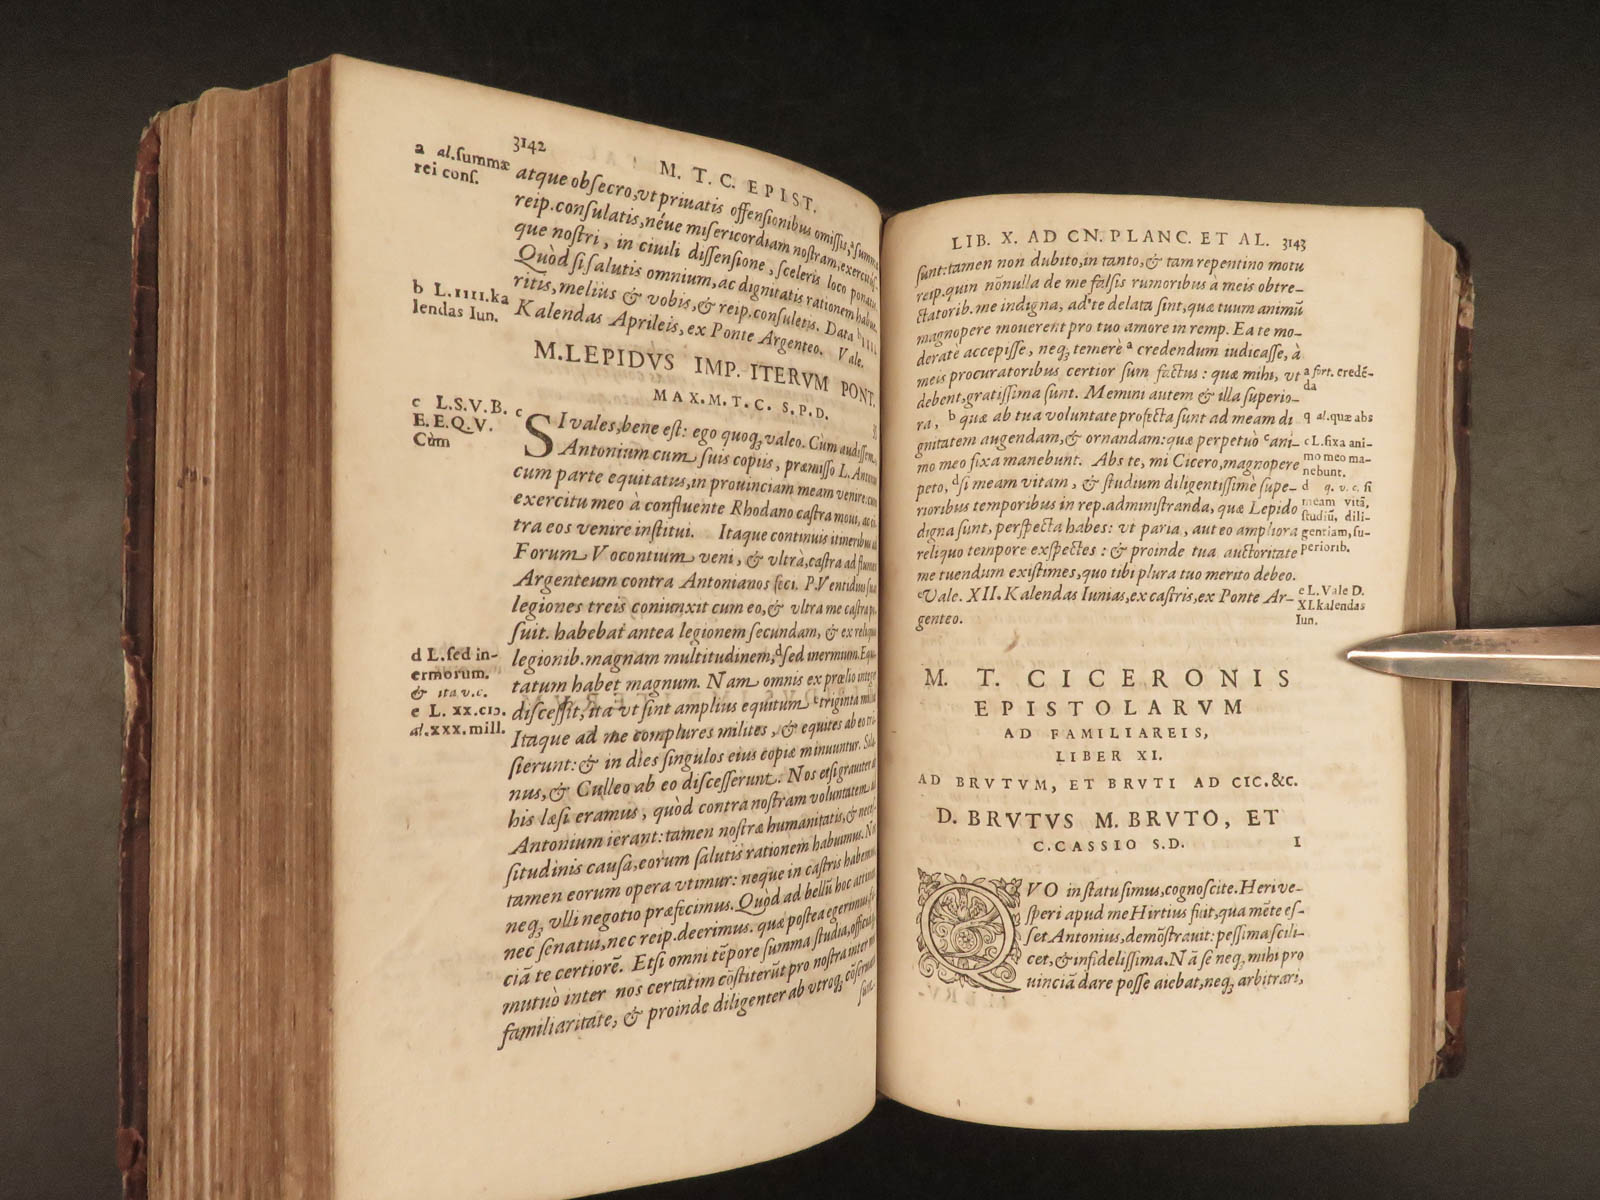 3142
M. T. C. EPIST.
a al. summæ
rei cons.
atque obsecro, vt priuatis offensionibus omissis, ᵃsumm
reip. consulatis, néue misericordiam nostram, exercitúsq
que nostri, in ciuili dissensione, sceleris loco ponatis.
Quòd si salutis omnium, ac dignitatis rationem habue
ritis, melius & vobis, & reip. consuletis. Data ᵇ IIII.
b L. IIII. ka
lendas Iun.
Kalendas Aprileis, ex Ponte Argenteo. Vale.
M. LEPIDVS IMP. ITERVM PONT.
MAX. M. T. C. S. P. D.
c L. S. V. B.
E. E. Q. V.
Cùm
ᶜ SI vales, bene est: ego quoq; valeo. Cum audissem,
Antonium cum suis copiis, præmisso L. Antonio
cum parte equitatus, in prouinciam meam venire: cum
exercitu meo à confluente Rhodano castra moui, ac cō
tra eos venire institui. Itaque continuis itineribus ad
Forum Vocontium veni, & vltrà, castra ad flumen
Argenteum contra Antonianos feci. P. Ventidius suas
legiones treis coniunxit cum eo, & vltra me castra po
suit. habebat antea legionem secundam, & ex reliquis
d L. sed in-
ermorum.
& ita v. c.
legionib. magnam multitudinem, ᵈsed inermium. Equi
tatum habet magnum. Nam omnis ex prælio integer
e L. XX. CIƆ.
al. XXX. mill.
discessit, ita vt sint amplius equitum ᵉtriginta millia
Itaque ad me complures milites, & equites ab eo tran
sierunt: & in dies singulos eius copiæ minuuntur. Sila
nus, & Culleo ab eo discesserunt. Nos etsi grauiter ab
his læsi eramus, quòd contra nostram voluntatem ad
Antonium ierant: tamen nostræ humanitatis, & neces-
situdinis causa, eorum salutis rationem habuimus. Nec
tamen eorum opera vtimur: neque in castris habemus,
neq; vlli negotio præfecimus. Quòd ad bellū hoc attinet
nec senatui, nec reip. deerimus. quæ postea egerimus, fa
ciā te certiorē. Etsi omni tēpore summa studia, officii
mutuò inter nos certatim cōstiterūt pro nostra inter nos
familiaritate, & proinde diligenter ab vtroq; cōseruata
sunt
LIB. X. AD CN. PLANC. ET AL. 3143
sunt: tamen non dubito, in tanto, & tam repentino motu
reip. quin nōnulla de me falsis rumoribus à meis obtre-
ctatorib. me indigna, ad te delata sint, quæ tuum animū
magnopere mouerent pro tuo amore in remp. Ea te mo-
deratè accepisse, neq; temerè ᵃ credendum iudicasse, à
meis procuratoribus certior sum factus: quæ mihi, vt
a fort. credē-
da
debent, gratissima sunt. Memini autem & illa superio-
ra, ᵇ quæ ab tua voluntate profecta sunt ad meam di
q al. quæ abs
gnitatem augendam, & ornandam: quæ perpetuò ᶜani-
mo meo fixa manebunt. Abs te, mi Cicero, magnopere
c L. fixa ani-
mo meo ma-
nebunt.
peto, ᵈsi meam vitam, & studium diligentissimè supe-
rioribus temporibus in rep. administranda, quæ Lepido
digna sunt, perspecta habes: vt paria, aut eo ampliora
reliquo tempore exspectes: & proinde tua auctoritate
d q. v. c. si
meam vitā,
studiū, dili-
gentiam, su-
periorib.
me tuendum existimes, quo tibi plura tuo merito debeo.
ᵉVale. XII. Kalendas Iunias, ex castris, ex Ponte Ar-
genteo.
e L. Vale D.
XI. kalendas
Iun.
M. T. CICERONIS
EPISTOLARVM
AD FAMILIAREIS,
LIBER XI.
AD BRVTVM, ET BRVTI AD CIC. &c.
D. BRVTVS M. BRVTO, ET
C. CASSIO S. D. I
QVO in statu simus, cognoscite. Heri ve-
speri apud me Hirtius fuit, qua mēte es-
set Antonius, demōstrauit: pessima scili-
cet, & infidelissima. Nā se neq; mihi pro
uinciā dare posse aiebat, neq; arbitrari,